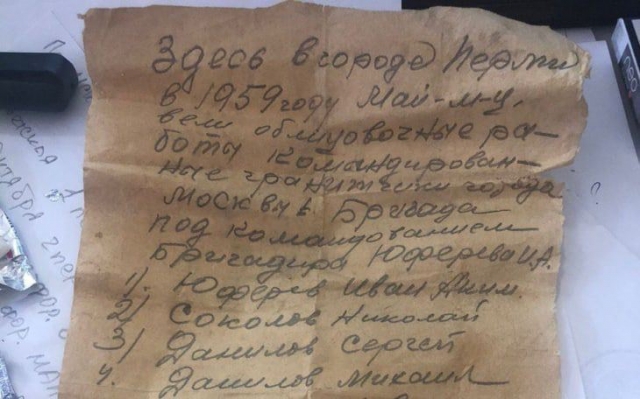 Здесь в городе Перми
в 1959 году Май-м-ц,
вели облицовочные ра-
боты командирован-
ные гранитчики города
Москвы Бригада
под командованием
Бригадира Юферева И.А.
1). Юферев Иван Аким.
2) Соколов Николай
3) Данилов Сергей
4. Данилов Михаил